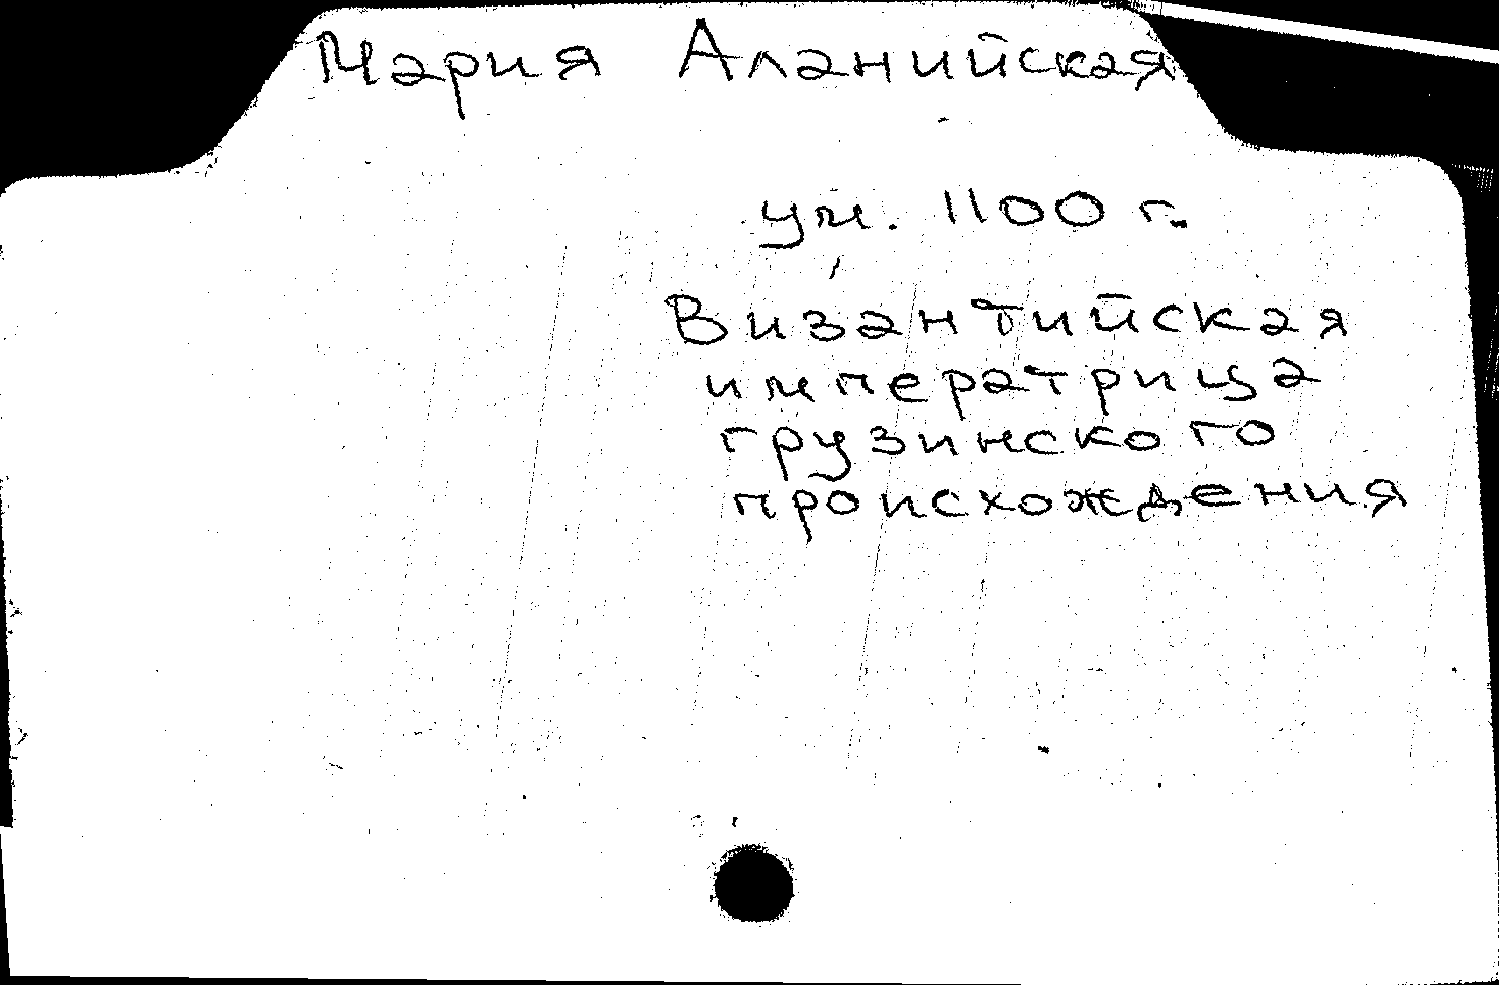 Мария Аланийская
ум. 1100 г.
Византийская
императрица
грузинского
происхождения